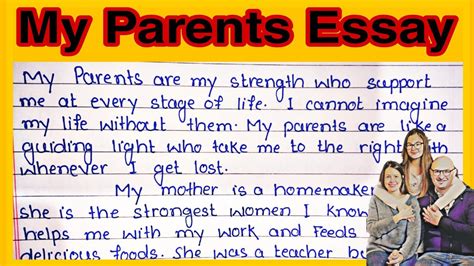 My Parents Essay
My Parents are my strength who support
me at every stage of life. I cannot imagine
my life without them. My parents are like a
guiding light who take me to the right
whenever I get lost.
My mother is a homemaker
she is the strongest women I know
helps me with my work and feeds
delicious foods. She was a teacher